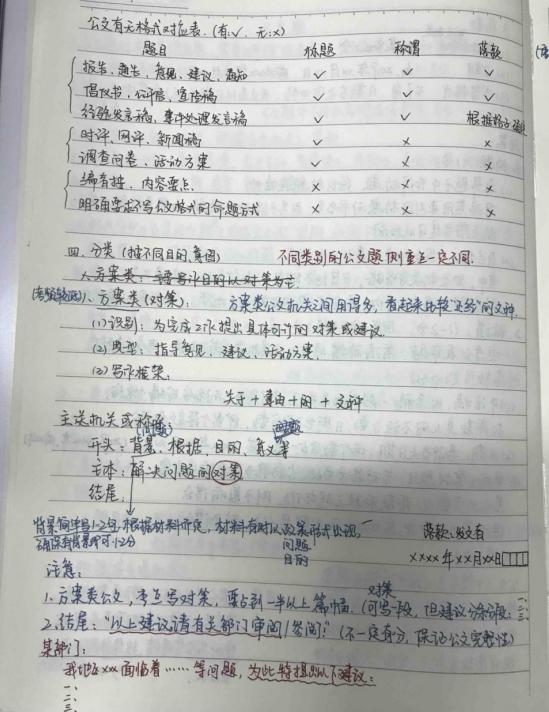 公文有无格式对应表.（有:✓，无:×）
题目 标题 称谓 落款
报告、通告、意见、建议、通知 ✓ ✓ ✓
倡议书、公开信、宣传稿 ✓ ✓ ✓
经验发言稿、事件处理发言稿 ✓ ✓ 根据格子
时评、网评、新闻稿 ✓ × ×
调查问卷、活动方案 ✓ × ×
编者按、内容要点 × × ×
明确要求不写公文格式的命题方式 × × ×
四. 分类（按不同目的、意图） 不同类别的公文题，侧重点一定不同.
1. 方案类: 主要写作目的以对策为主.
1、方案类（对策）： 方案类公文机关之间用得多，看起来比较“正经”的文种.
(1) 识别：为完成工作提出具体可行的对策或建议.
(2) 典型：指导意见、建议、活动方案.
(3) 写作框架：
关于+事由+的+文种
主送机关或称谓
(问题) 问题
开头：背景、根据、目的、意义等
主体：解决问题的对策
结尾：
背景简单写1-2句，根据材料而定，材料有时以政策形式出现， 落款：发文者
确保有背景即可1-2分 问题
目的 xxxx年xx月xx日
注意：
对策
1. 方案类公文，重点写对策，要占到一半以上篇幅.（可写一段，但建议分段
2. 结尾：“以上建议请有关部门审阅/签阅！”（不一定有分，保证公文完整性）
某部门：
我地区xxx面临着……等问题，为此特提出以下建议：
一、
二、
三、